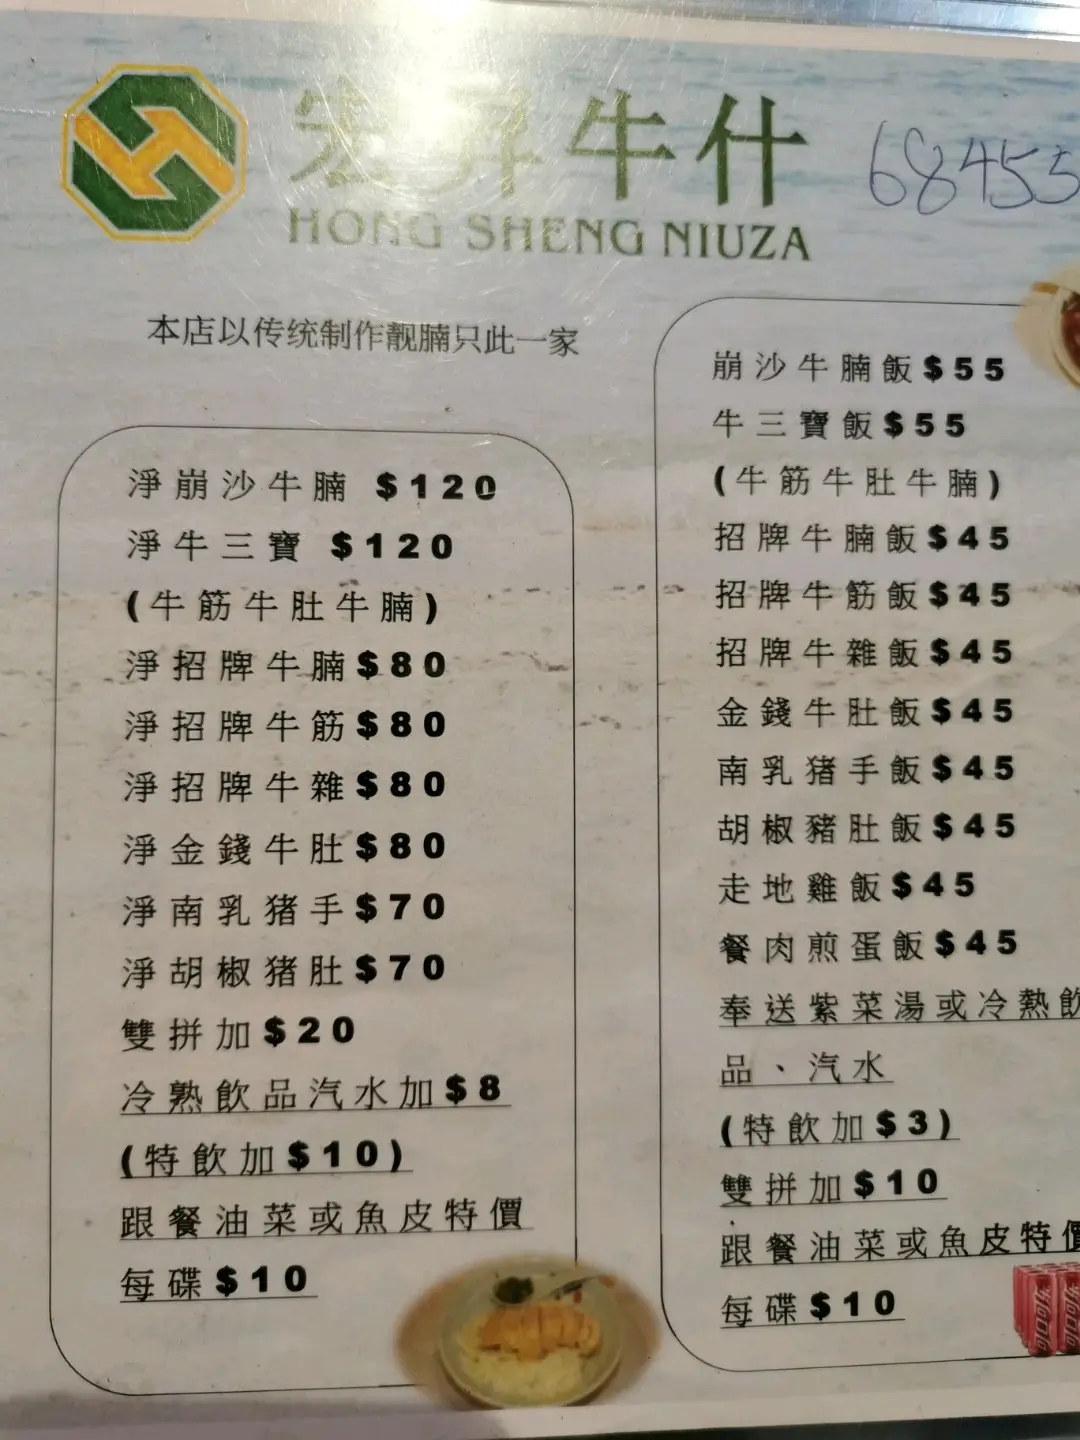 宏昇牛什
68455
HONG SHENG NIUZA
本店以传统制作靓腩只此一家
淨崩沙牛腩 $120
淨牛三寶 $120
(牛筋牛肚牛腩)
淨招牌牛腩$80
淨招牌牛筋$80
淨招牌牛雜$80
淨金錢牛肚$80
淨南乳猪手$70
淨胡椒猪肚$70
雙拼加$20
冷熟飲品汽水加$8
(特飲加$10)
跟餐油菜或魚皮特價
每碟$10
崩沙牛腩飯$55
牛三寶飯$55
(牛筋牛肚牛腩)
招牌牛腩飯$45
招牌牛筋飯$45
招牌牛雜飯$45
金錢牛肚飯$45
南乳猪手飯$45
胡椒豬肚飯$45
走地雞飯$45
餐肉煎蛋飯$45
奉送紫菜湯或冷熱飲
品、汽水
(特飲加$3)
雙拼加$10
跟餐油菜或魚皮特價
每碟$10